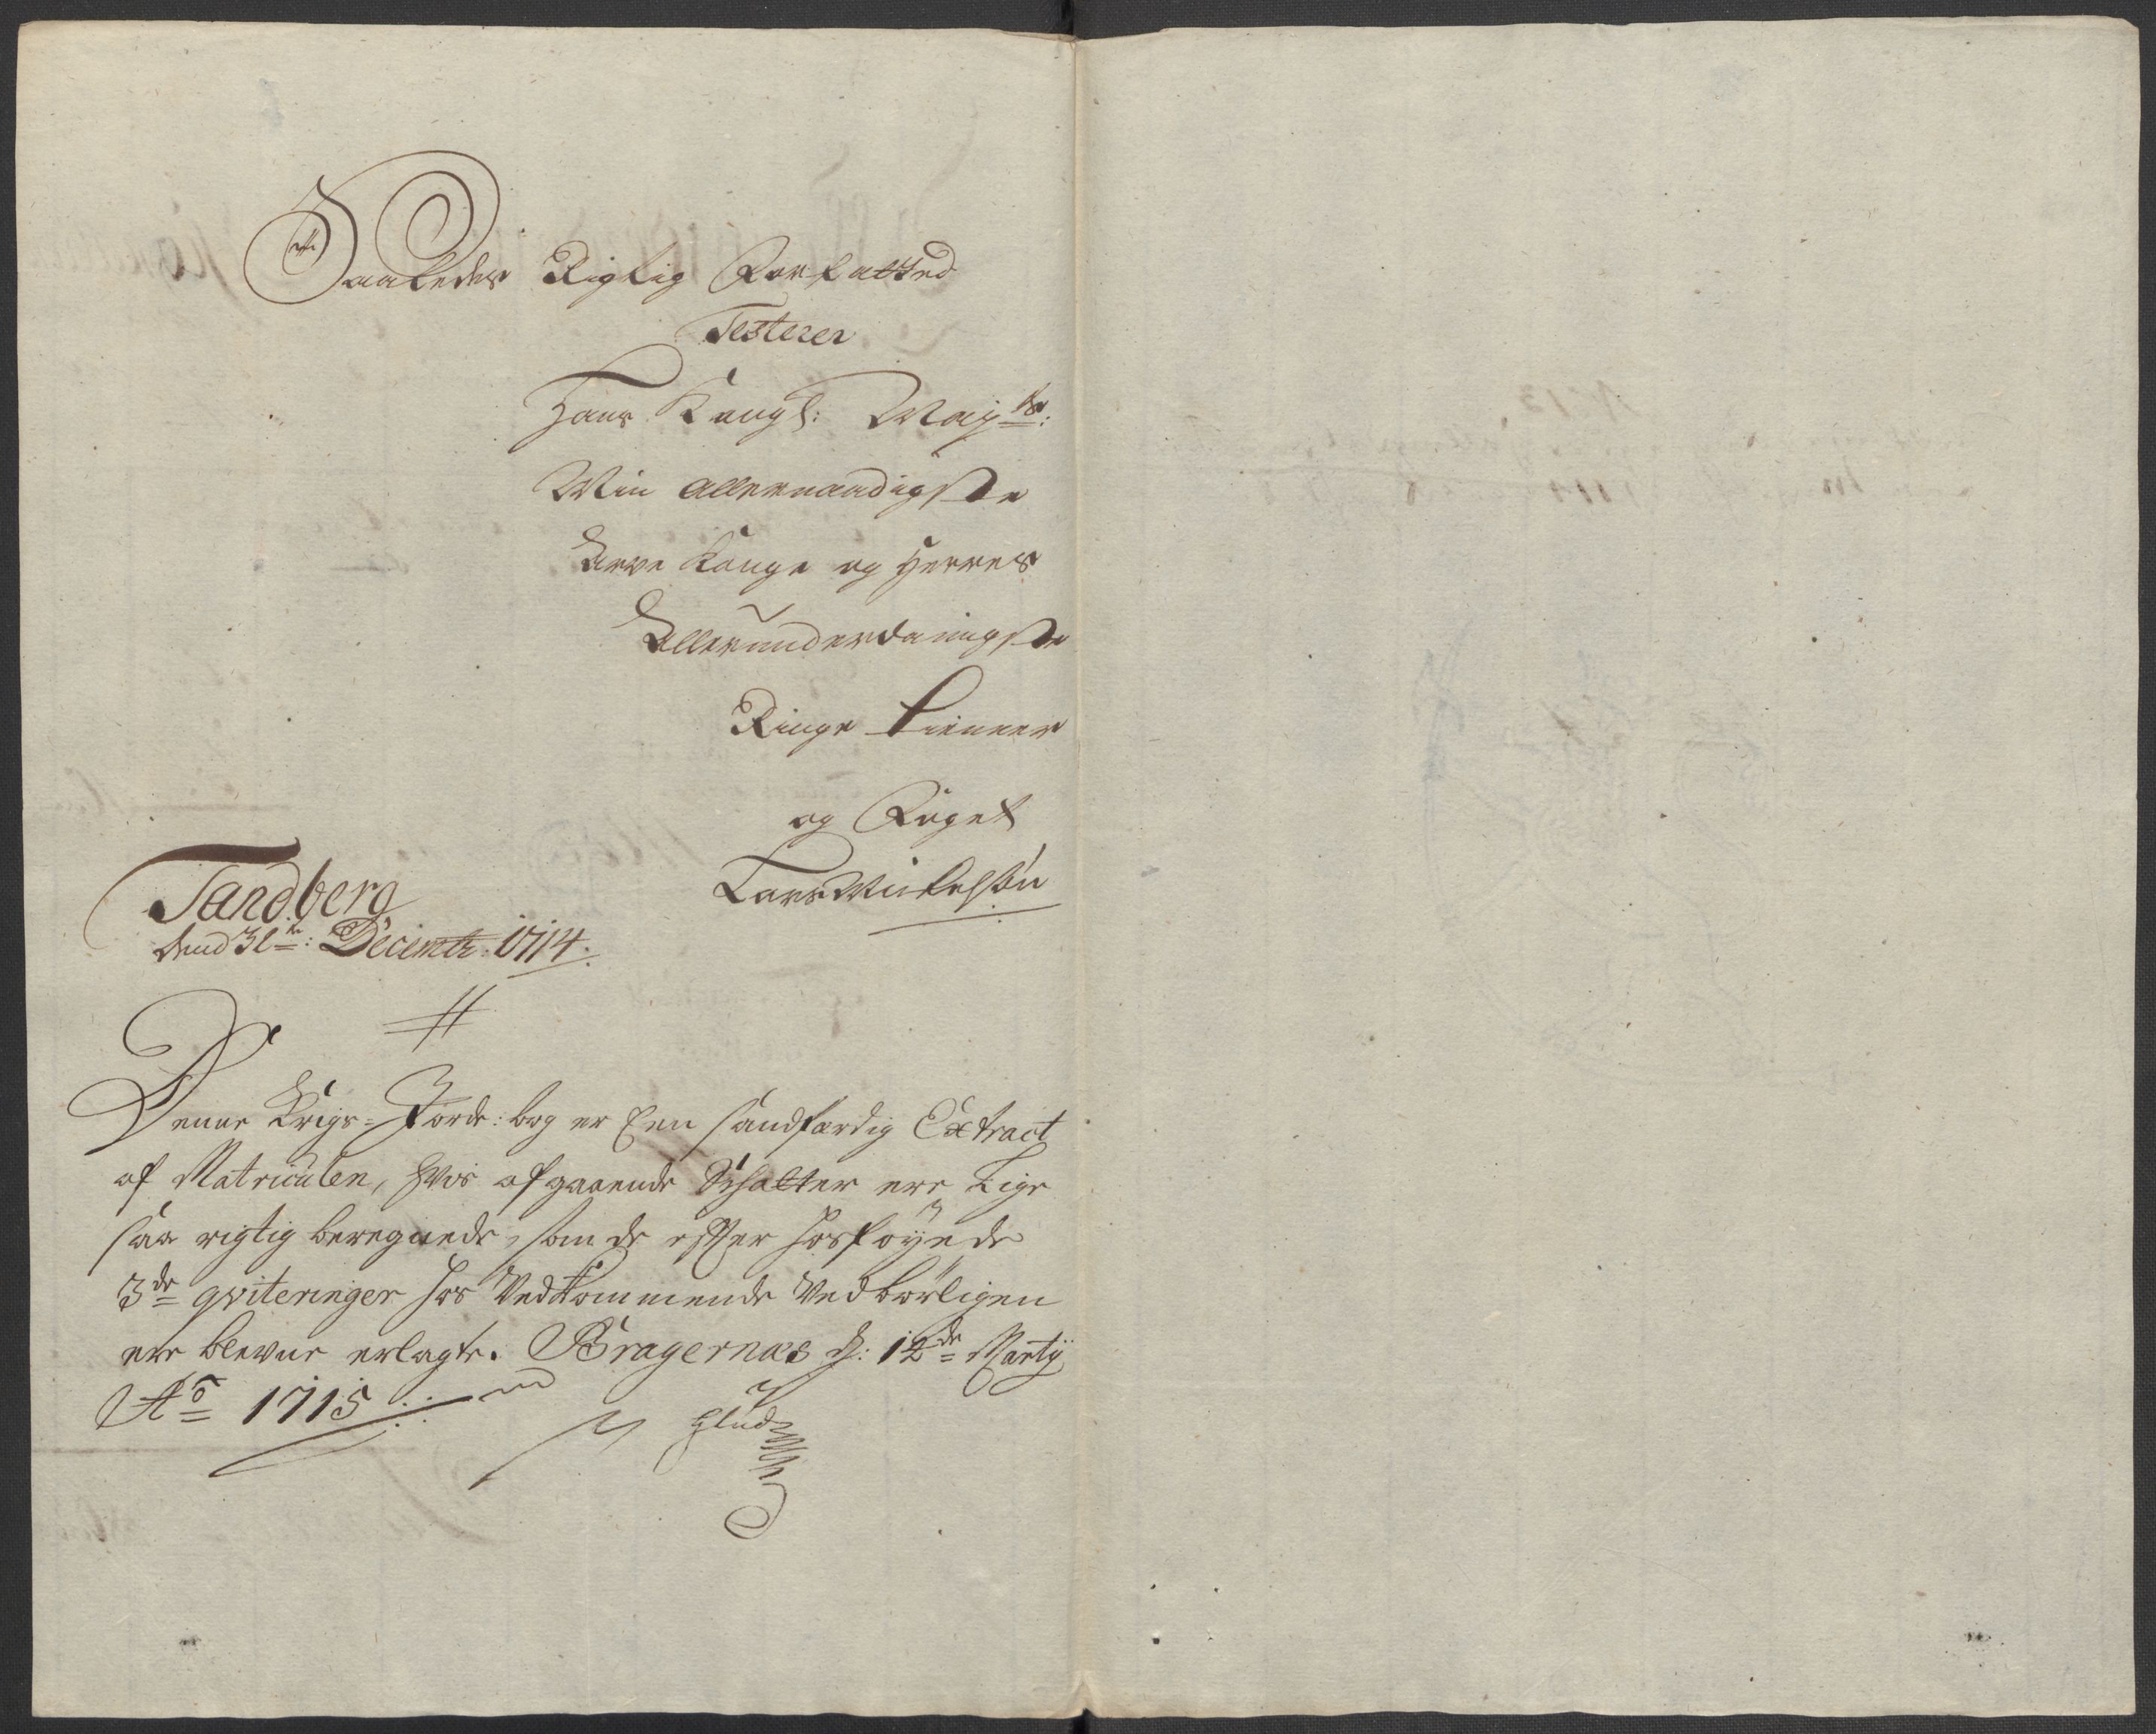 Saaledes Rigtig Forfatted
Testerer
Hans Kongl: Mayts:
Min allernaadigste
Arve Konge og Herres
Allerunderdanigste
Ringe tienner
og Foget
Lars Mickelsøn
Tandberg
dend 31te: Decembr: 1714.
Denne Krigs-Jorde: bog er Een sandfærdig Extract
af Matriculen, hvis afgaaende Schatter ere Lige
saa rigtig beregnede, som de efter hosføyede
3de qviteringer hos Vedkommende Vedbørligen
ere blevne erlagte. Bragernæs d: 12de Martij
Ao 1715
Glud